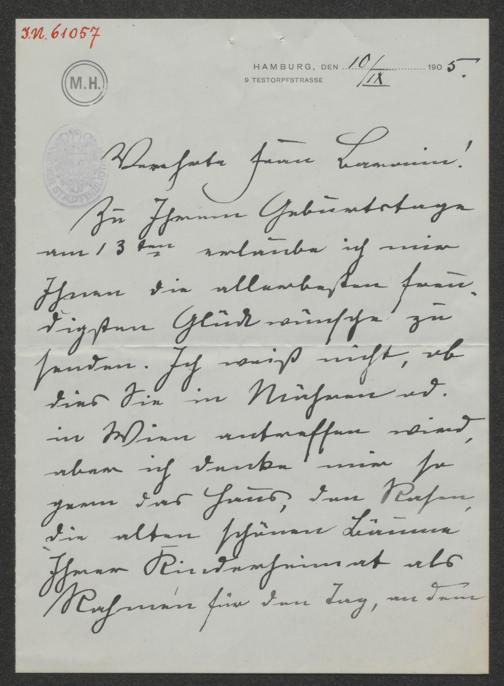 I.N. 61057
M.H.
HAMBURG, DEN 10/IX 1905.
9 TESTORPFSTRASSE
Verehrte Frau Baronin!
Zu Ihrem Geburtstage
am 13ten erlaube ich mir
Ihnen die allerbesten freu-
digsten Glückwünsche zu
senden. Ich weiß nicht, ob
dies Sie in Mähren od.
in Wien antreffen wird,
aber ich denke mir so
gern das Haus, den Rasen,
die alten schönen Bäume
Ihrer Kinderheimat als
Rahmen für den Tag, an dem